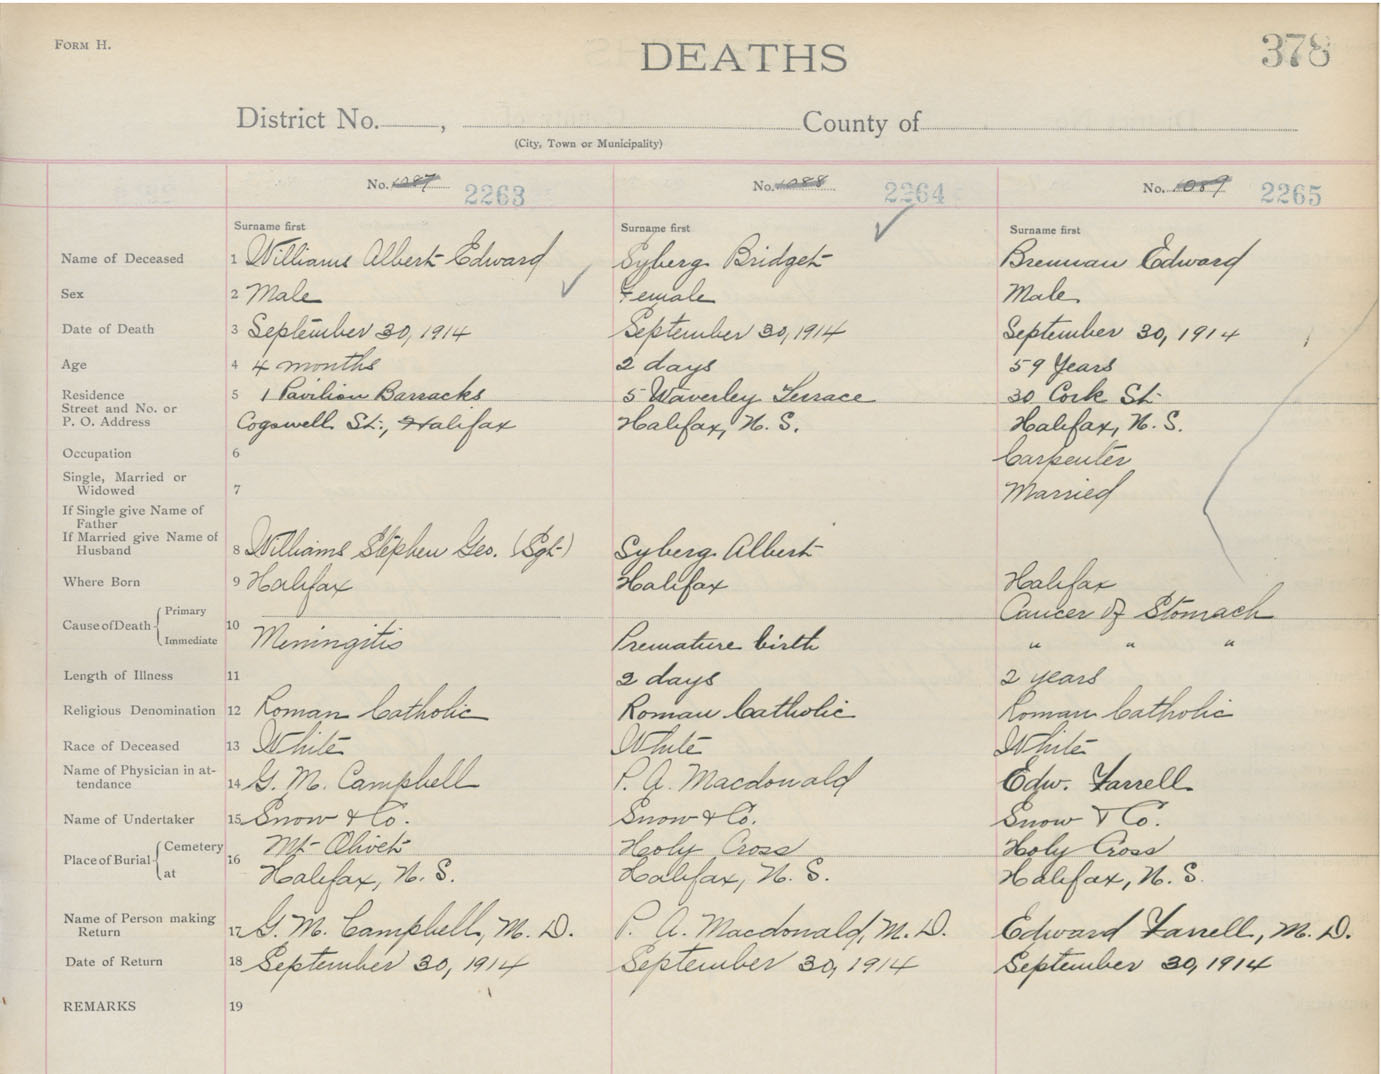 FORM H.
DEATHS
378
District No. , County of
(City, Town or Municipality)
No. 1087 2263 No. 1088 2264 No. 1089 2265
Surname first Surname first Surname first
Name of Deceased 1 Williams Albert Edward Syberg Bridget Brennan Edward
Sex 2 Male Female Male
Date of Death 3 September 30, 1914 September 30, 1914 September 30, 1914
Age 4 4 months 2 days 59 Years
Residence 5 1 Pavilion Barracks 5 Waverley Terrace 30 Cork St.
Street and No. or
P. O. Address Cogswell St., Halifax Halifax, N. S. Halifax, N. S.
Occupation 6 Carpenter
Single, Married or
Widowed 7 Married
If Single give Name of
Father
If Married give Name of
Husband 8 Williams Stephen Geo. (Sgt) Syberg Albert
Where Born 9 Halifax Halifax Halifax
Cause of Death Primary Cancer of Stomach
10 Immediate Meningitis Premature birth " " "
Length of Illness 11 2 days 2 years
Religious Denomination 12 Roman Catholic Roman Catholic Roman Catholic
Race of Deceased 13 White White White
Name of Physician in at-
tendance 14 G. M. Campbell P. A. Macdonald Edw. Farrell
Name of Undertaker 15 Snow & Co. Snow & Co. Snow & Co.
Place of Burial Cemetery 16 Mt Olivet Holy Cross Holy Cross
at Halifax, N. S. Halifax, N. S. Halifax, N. S.
Name of Person making
Return 17 G. M. Campbell, M. D. P. A. Macdonald, M. D. Edward Farrell, M. D.
Date of Return 18 September 30, 1914 September 30, 1914 September 30, 1914
REMARKS 19